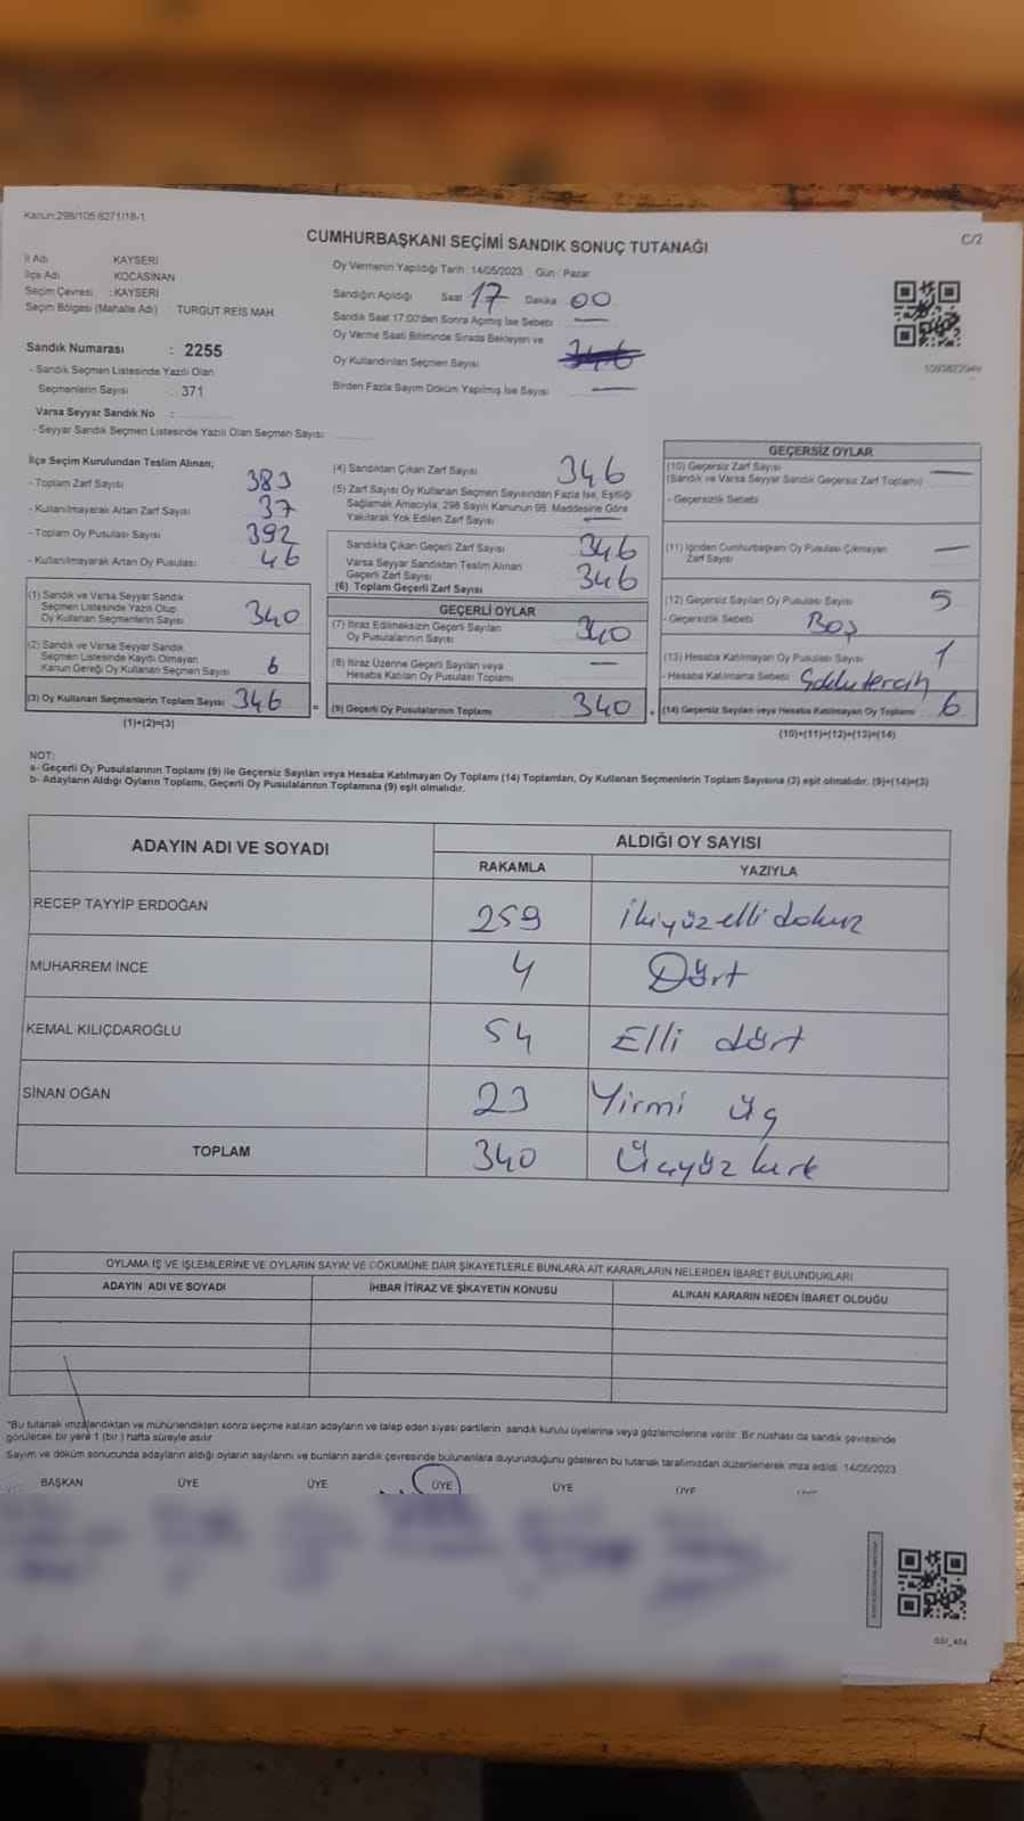 Kanun:298/105 6271/18-1
C/2
CUMHURBAŞKANI SEÇİMİ SANDIK SONUÇ TUTANAĞI
İl Adı KAYSERİ
İlçe Adı KOCASİNAN
Seçim Çevresi : KAYSERİ
Seçim Bölgesi (Mahalle Adı) TURGUT REİS MAH.
Oy Vermenin Yapıldığı Tarih : 14/05/2023 Gün : Pazar
Sandığın Açıldığı Saat 17 Dakika 00
Sandık Saat 17:00'den Sonra Açılmış İse Sebebi —
Oy Verme Saati Bitiminde Sırada Bekleyen ve
Oy Kullandırılan Seçmen Sayısı 346
Birden Fazla Sayım Döküm Yapılmış İse Sayısı —
Sandık Numarası : 2255
- Sandık Seçmen Listesinde Yazılı Olan
Seçmenlerin Sayısı 371
Varsa Seyyar Sandık No :
- Seyyar Sandık Seçmen Listesinde Yazılı Olan Seçmen Sayısı
İlçe Seçim Kurulundan Teslim Alınan;
- Toplam Zarf Sayısı 383
- Kullanılmayarak Artan Zarf Sayısı 37
- Toplam Oy Pusulası Sayısı 392
- Kullanılmayarak Artan Oy Pusulası 46
(1) Sandık ve Varsa Seyyar Sandık
Seçmen Listesinde Yazılı Olup
Oy Kullanan Seçmenlerin Sayısı 340
(2) Sandık ve Varsa Seyyar Sandık
Seçmen Listesinde Kayıtlı Olmayan
Kanun Gereği Oy Kullanan Seçmen Sayısı 6
(3) Oy Kullanan Seçmenlerin Toplam Sayısı 346
(1)+(2)=(3)
(4) Sandıktan Çıkan Zarf Sayısı 346
(5) Zarf Sayısı Oy Kullanan Seçmen Sayısından Fazla İse, Eşitliği
Sağlamak Amacıyla, 298 Sayılı Kanunun 98. Maddesine Göre
Yakılarak Yok Edilen Zarf Sayısı —
Sandıkta Çıkan Geçerli Zarf Sayısı 346
Varsa Seyyar Sandıktan Teslim Alınan
Geçerli Zarf Sayısı 346
(6) Toplam Geçerli Zarf Sayısı
GEÇERLİ OYLAR
(7) İtiraz Edilmeksizin Geçerli Sayılan
Oy Pusulalarının Sayısı 340
(8) İtiraz Üzerine Geçerli Sayılan veya
Hesaba Katılan Oy Pusulası Toplamı —
= (9) Geçerli Oy Pusulalarının Toplamı 340
GEÇERSİZ OYLAR
(10) Geçersiz Zarf Sayısı —
(Sandık ve Varsa Seyyar Sandık Geçersiz Zarf Toplamı)
- Geçersizlik Sebebi
(11) İçinden Cumhurbaşkanı Oy Pusulası Çıkmayan
Zarf Sayısı —
(12) Geçersiz Sayılan Oy Pusulası Sayısı 5
- Geçersizlik Sebebi Boş
(13) Hesaba Katılmayan Oy Pusulası Sayısı 1
- Hesaba Katılmama Sebebi
+ (14) Geçersiz Sayılan veya Hesaba Katılmayan Oy Toplamı 6
(10)+(11)+(12)+(13)=(14)
NOT:
a- Geçerli Oy Pusulalarının Toplamı (9) ile Geçersiz Sayılan veya Hesaba Katılmayan Oy Toplamı (14) Toplamları, Oy Kullanan Seçmenlerin Toplam Sayısına (3) eşit olmalıdır. (9)+(14)=(3)
b- Adayların Aldığı Oyların Toplamı, Geçerli Oy Pusulalarının Toplamına (9) eşit olmalıdır.
ADAYIN ADI VE SOYADI ALDIĞI OY SAYISI
RAKAMLA YAZIYLA
RECEP TAYYİP ERDOĞAN 259 ikiyüzelli dokuz
MUHARREM İNCE 4 Dört
KEMAL KILIÇDAROĞLU 54 Elli dört
SİNAN OĞAN 23 Yirmi üç
TOPLAM 340 Üçyüz kırk
OYLAMA İŞ VE İŞLEMLERİNE VE OYLARIN SAYIM VE DÖKÜMÜNE DAİR ŞİKAYETLERLE BUNLARA AİT KARARLARIN NELERDEN İBARET BULUNDUKLARI
ADAYIN ADI VE SOYADI İHBAR İTİRAZ VE ŞİKAYETİN KONUSU ALINAN KARARIN NEDEN İBARET OLDUĞU
"Bu tutanak imzalandıktan ve mühürlendikten sonra seçime katılan adayların ve talep eden siyasi partilerin sandık kurulu üyelerine veya gözlemcilerine verilir. Bir nüshası da sandık çevresinde
görülecek bir yere 1 (bir) hafta süreyle asılır
Sayım ve döküm sonucunda adayların aldığı oyların sayılarını ve bunların sandık çevresinde bulunanlara duyurulduğunu gösteren bu tutanak tarafımızdan düzenlenerek imza edildi. 14/05/2023
BAŞKAN ÜYE ÜYE ÜYE ÜYE ÜYE